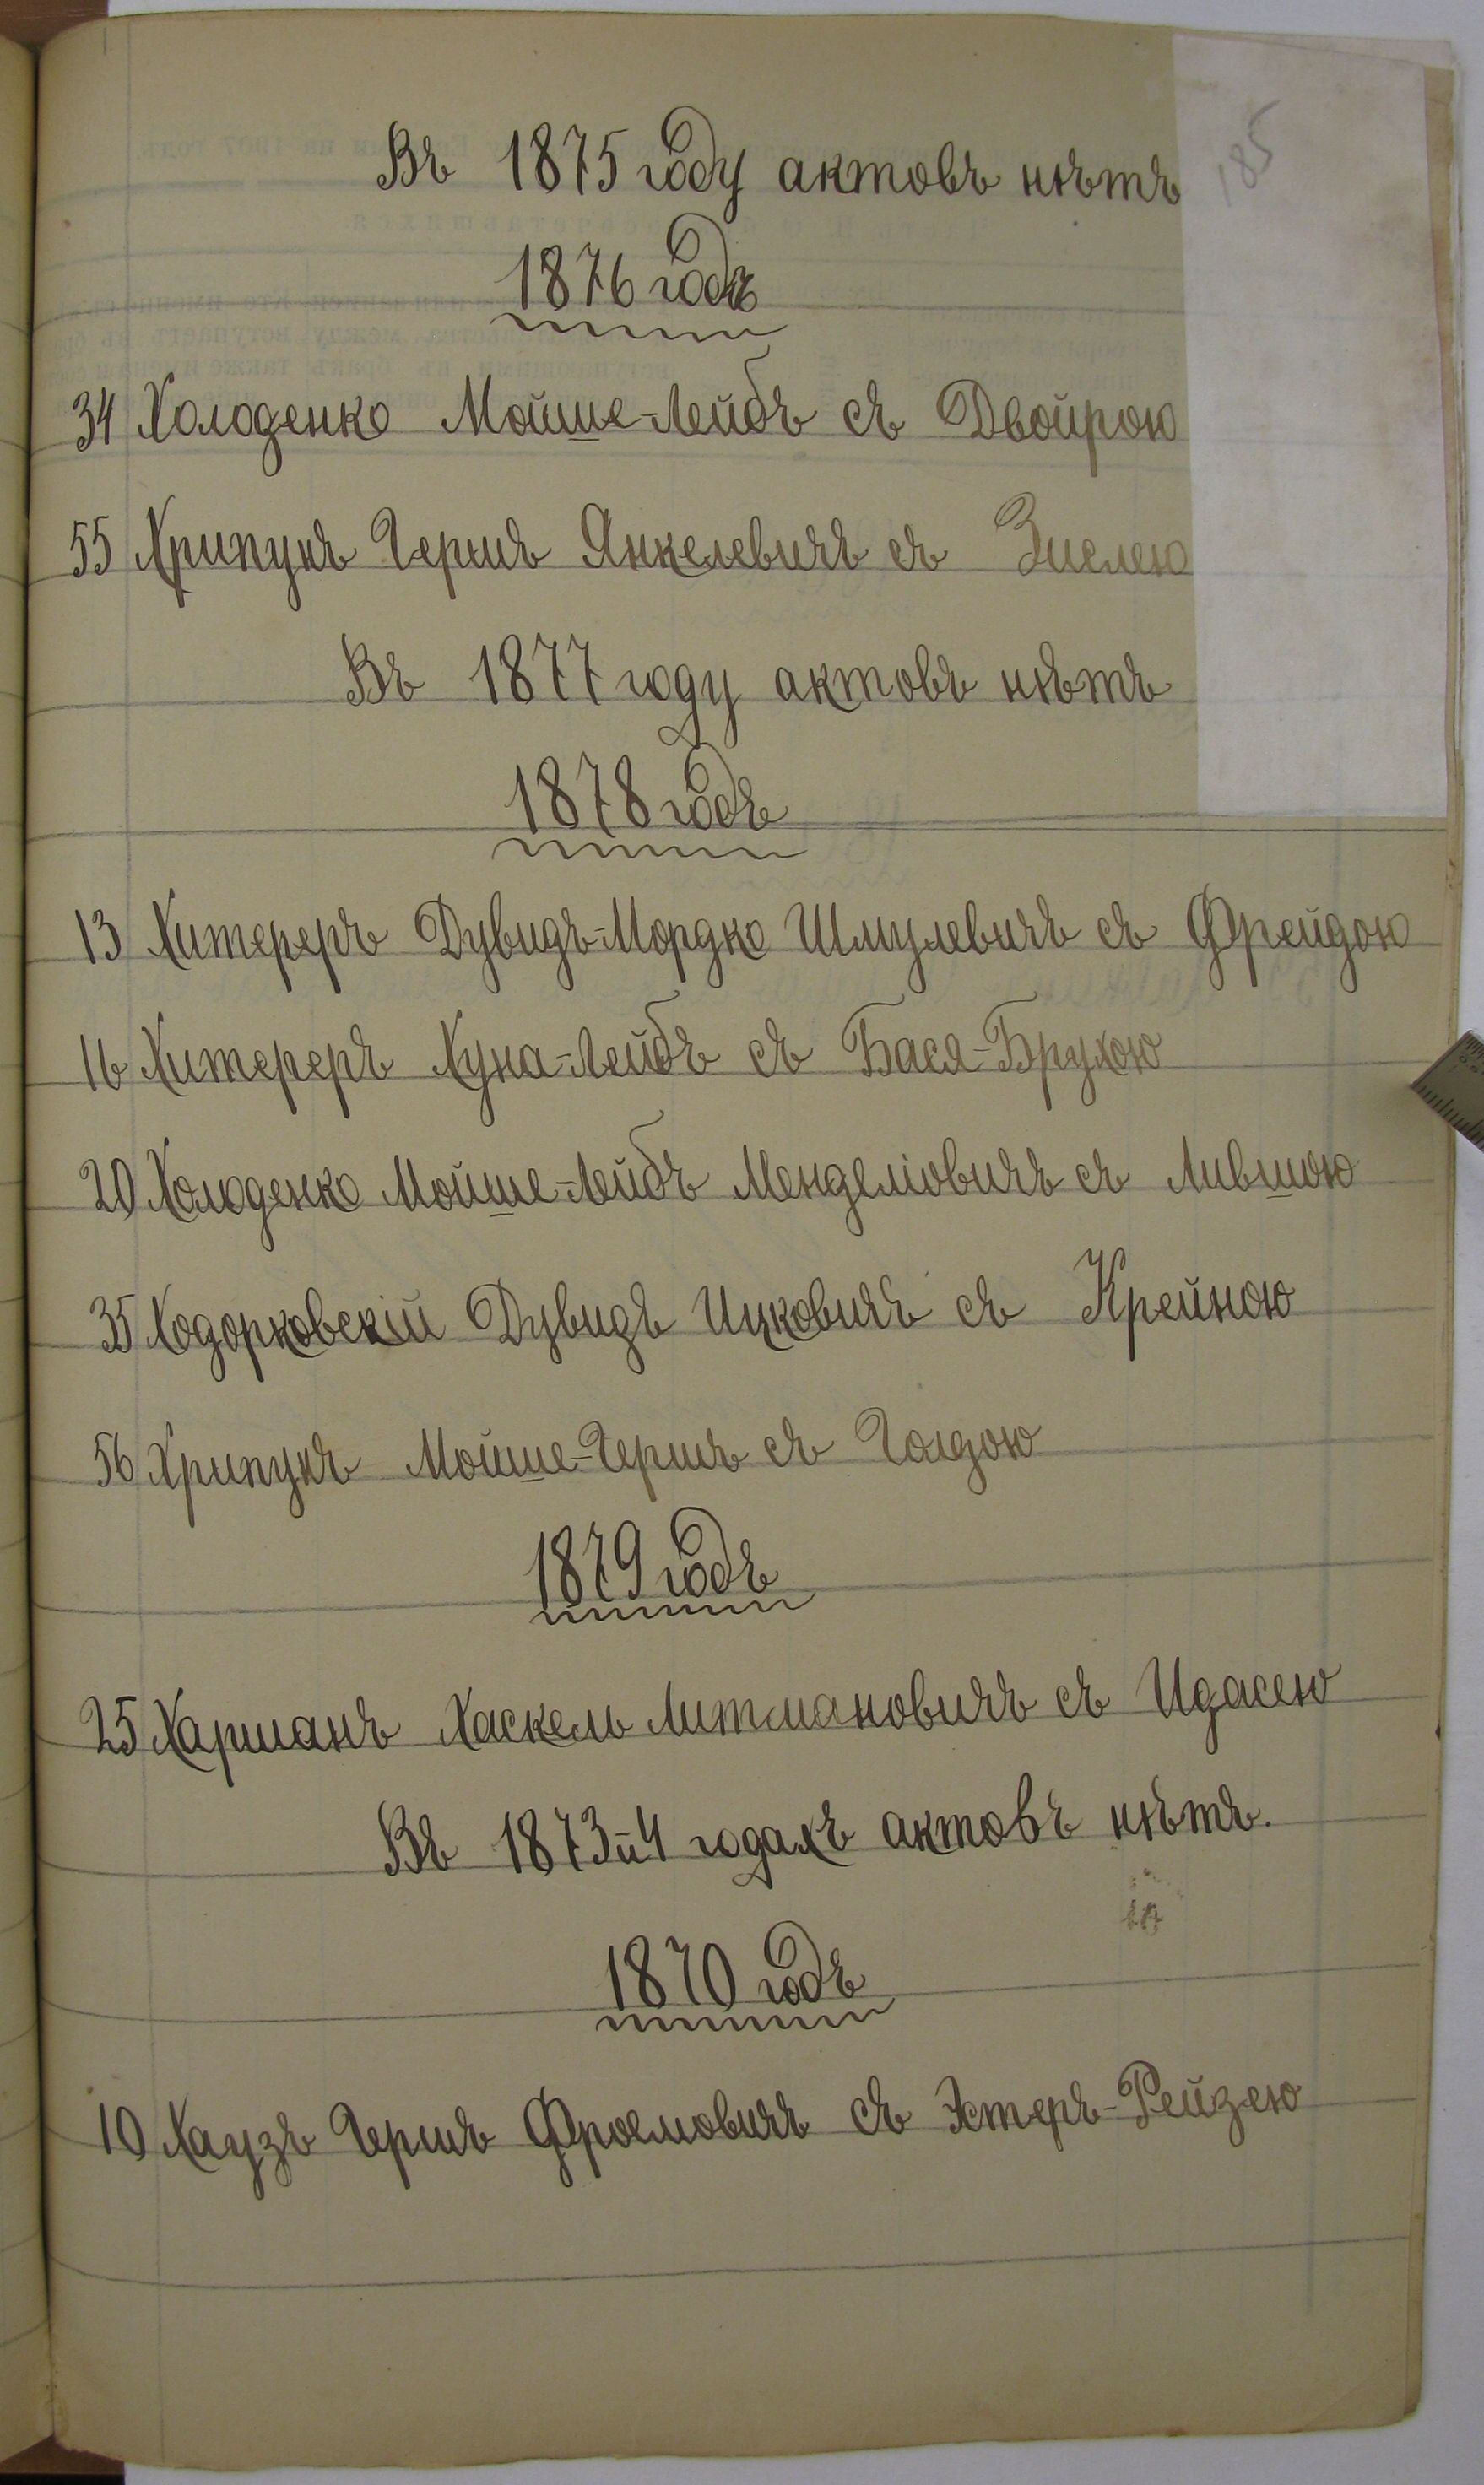 185
Въ 1875 году актовъ нѣтъ
1876 годъ
34 Холоденко Мойше-Лейбъ съ Двойрою
55 Хрипунъ Гершъ Янкелевичъ съ Зислею
Въ 1877 году актовъ нѣтъ
1878 годъ
13 Хитереръ Дувидъ-Мордко Шмулевичъ съ Фрейдою
16 Хитереръ Хуна-Лейбъ съ Бася-Брухою
20 Холоденко Мойше-Лейбъ Менделіовичъ съ Лившою
35 Ходорковскій Дувидъ Ицковичъ съ Крейною
56 Хрипунъ Мойше-Гершъ съ Голдою
1879 годъ
25 Харманъ Хаскель Литмановичъ съ Идасею
Въ 1873 и 4 годахъ актовъ нѣтъ.
1870 годъ
10 Хаузъ Гершъ Фроемовичъ съ Эстеръ-Рейзею